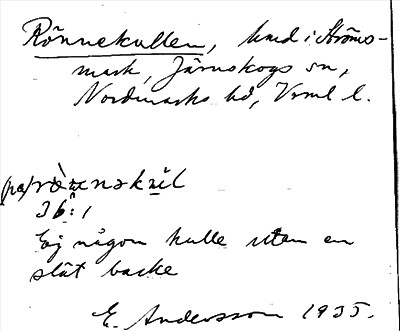 Rönnekullen, hmd i Ströms-
mark, Järnskogs sn,
Nordmarks hd, Vrml l.
(på)
36:1
Ej någon kulle utan en
slät backe
E. Andersson 1935.